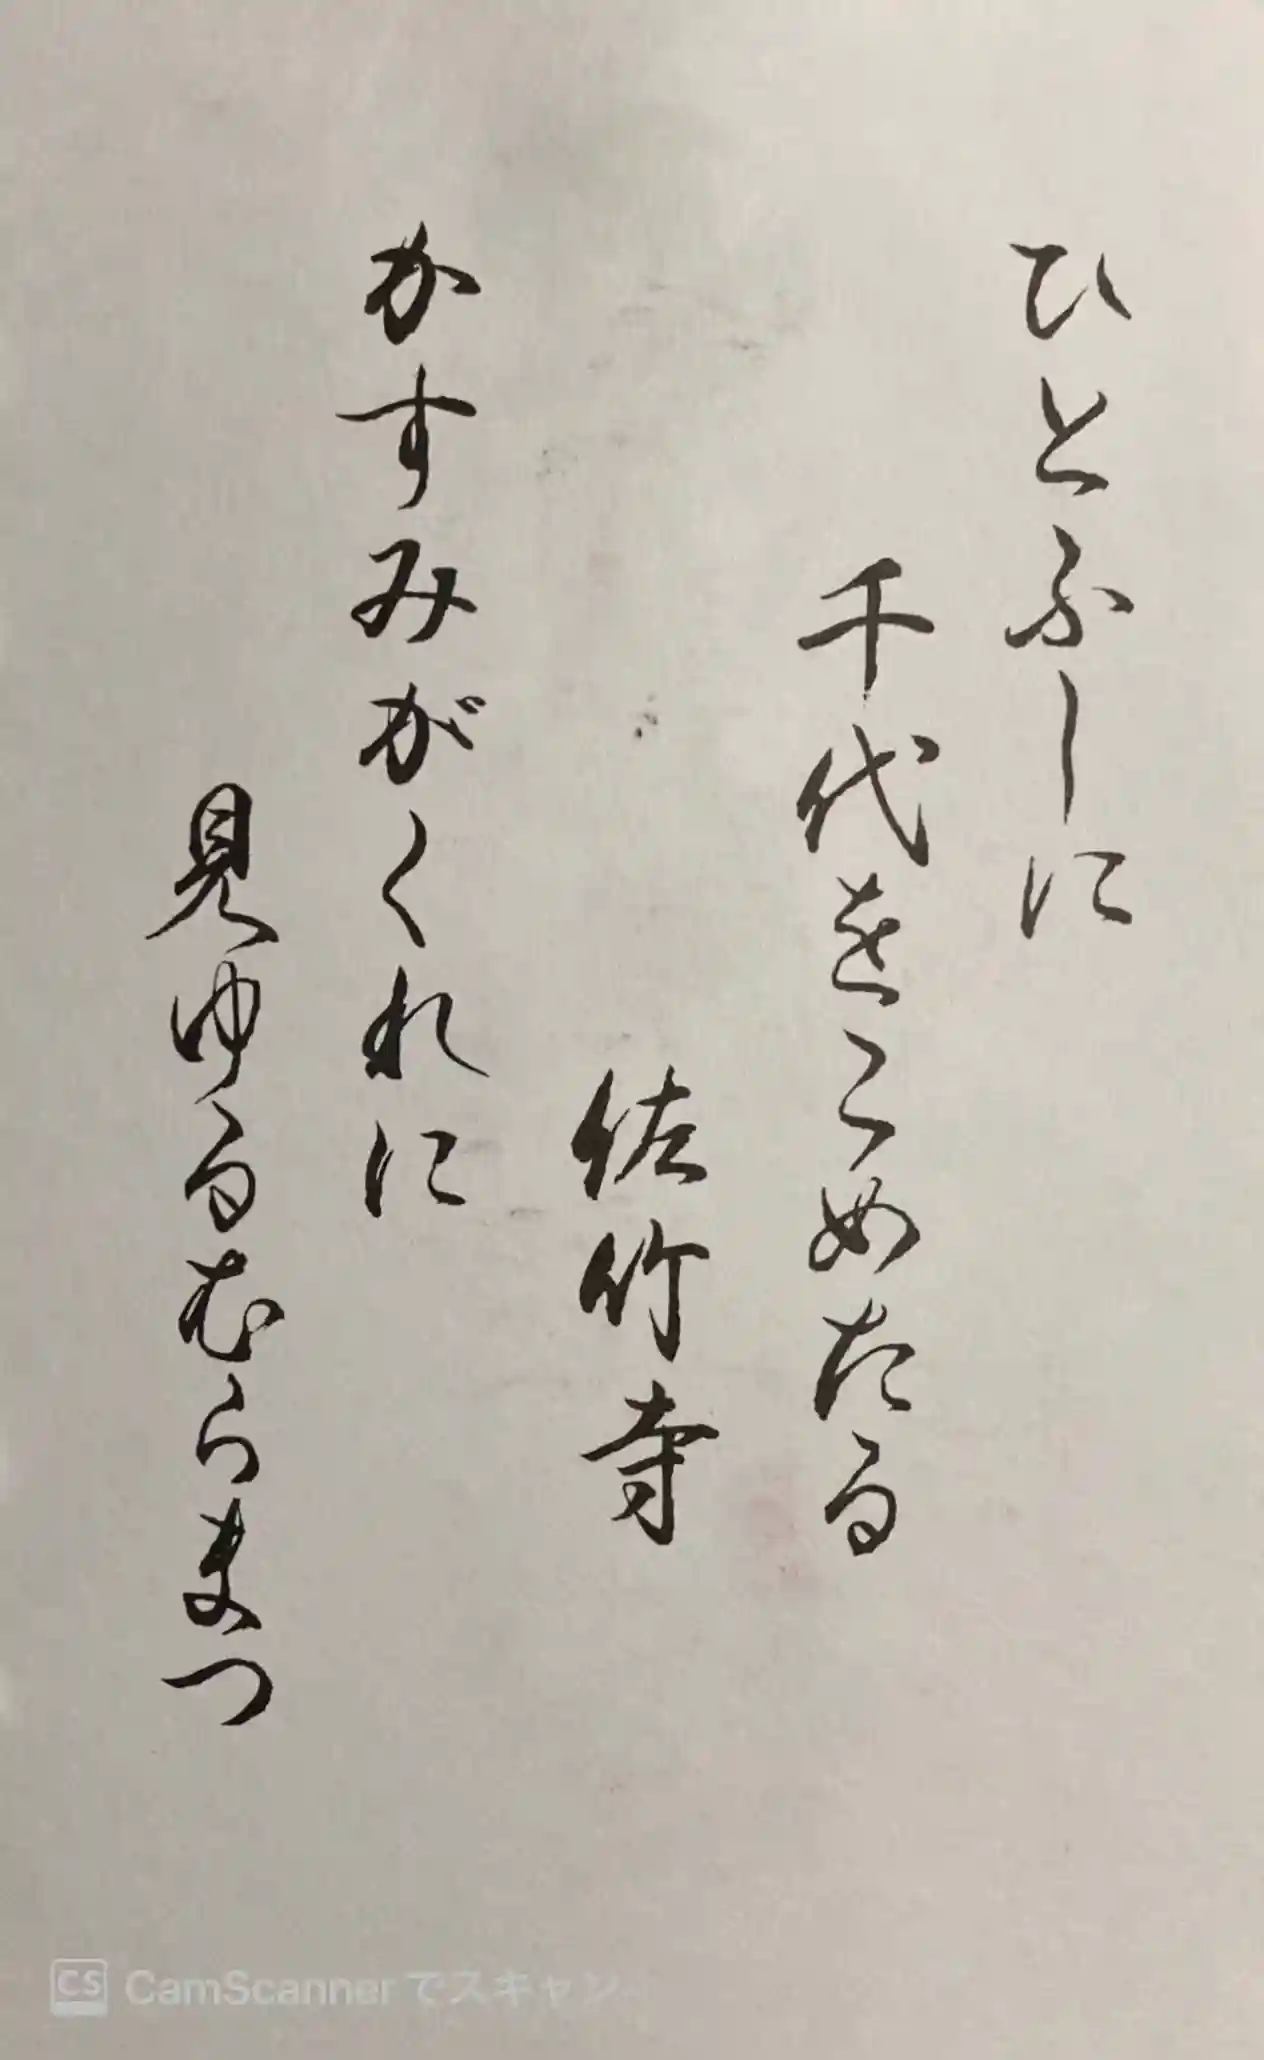 ひとふしに
千代をこめたる
佐竹寺
かすみがくれに
見ゆるむらまつ
CS CamScannerでスキャン